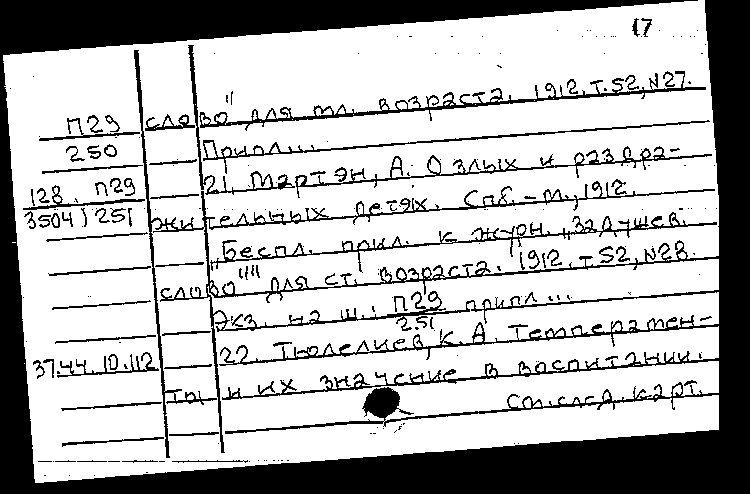 17
П29 слово" для мл. возраста. 1912. т. 52, N27.
250 Припл...
128 П29 21. Мартэн, А. О злых и раздра-
3504 ; 251 жительных детях. Спб.-М., 1912.
„Беспл. прил. к журн. „Задушев.
слово"" для ст. возраста. 1912. т. 52, N28.
Экз. на ш.: П29 припл...
251
37.44.10.112 22. Тюлелиев, К. А. Темперамен-
ты и их значение в воспитании.
См. след. карт.